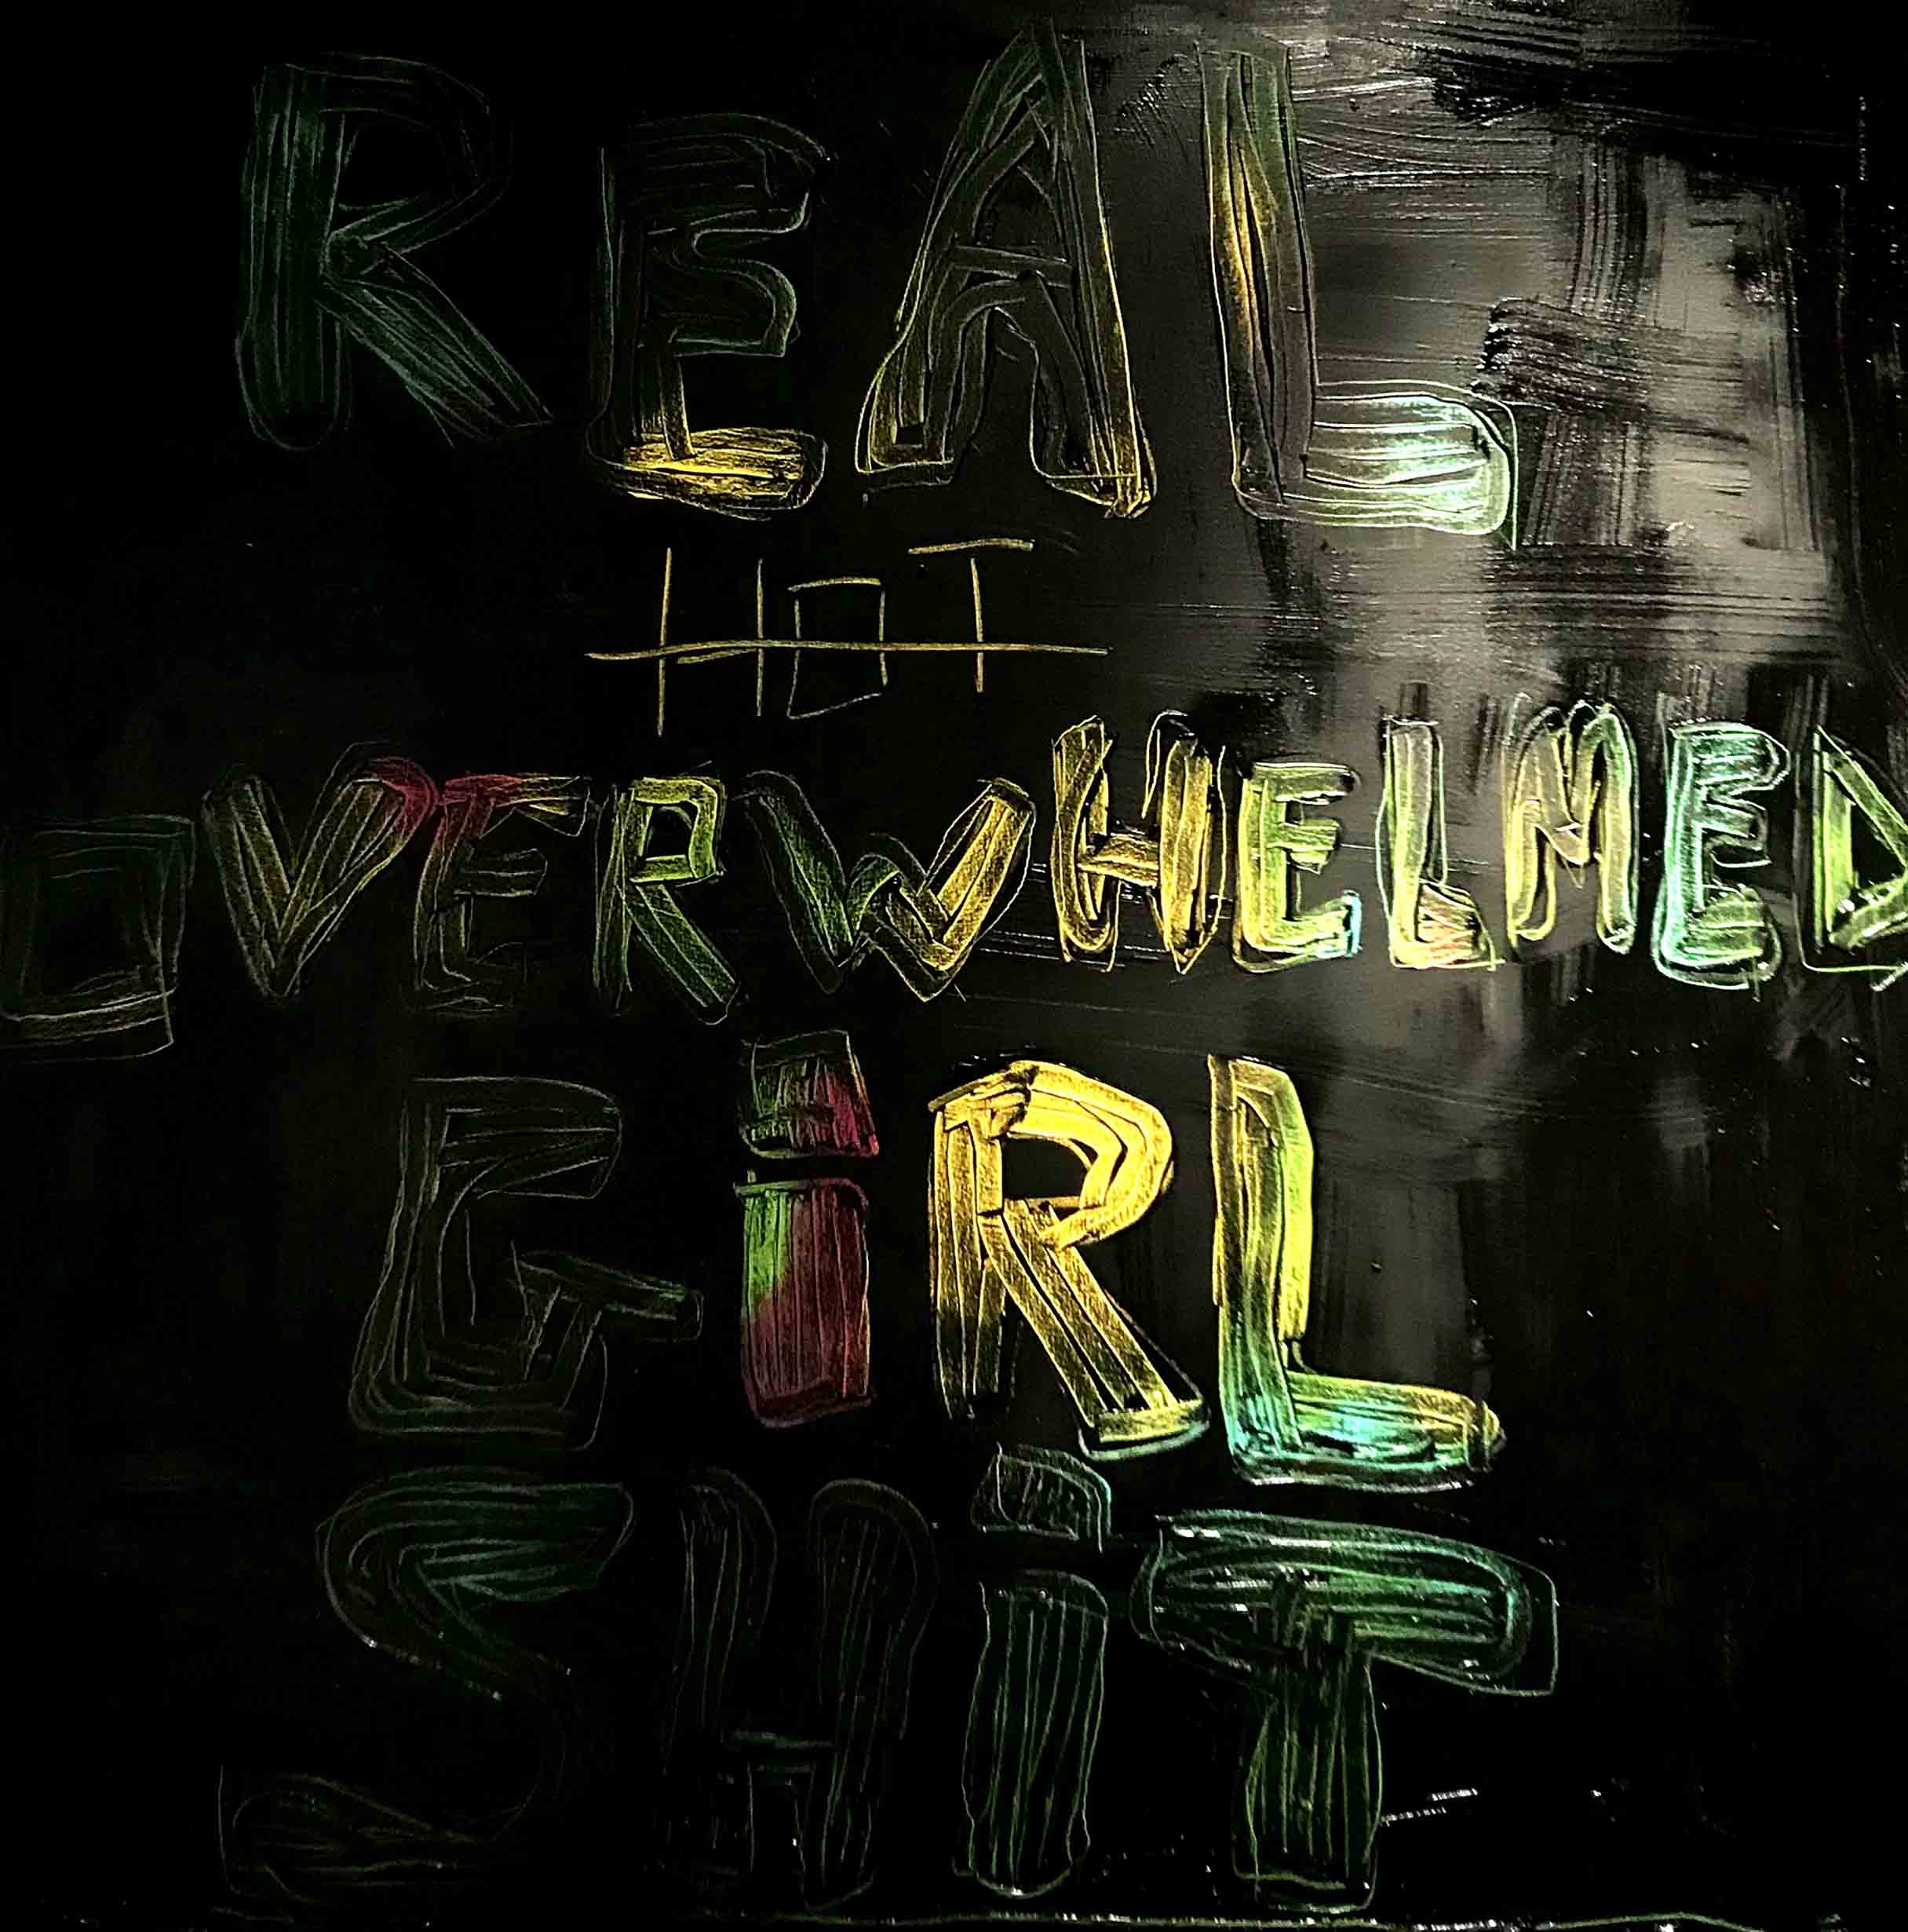 REAL
HOT
OVERWHELMED
GiRL
SHiT